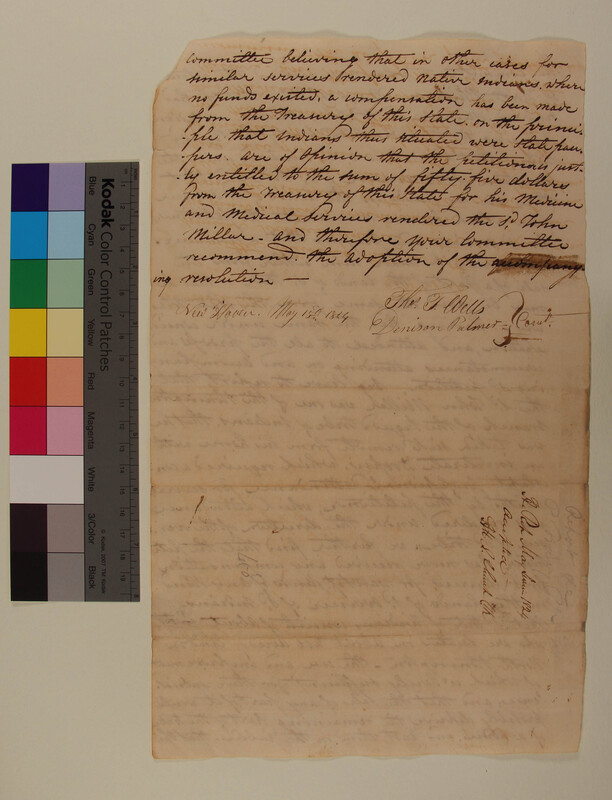 committee believing that in other cases for
similar services rendered native Indians, where
no funds existed, a compensation has been made
from the Treasury of this State. on the princi
ple that Indians thus situated were State pau
pers. are of Opinion that the petitioner is just-
ly entitled to the sum of fifty-five dollars
from the Treasury of this State for his Medicine
and Medical Services rendered the Sd. John
Millar - and therefore your Committee
recommend the adoption of the accompany
ing resolution —
New Haven. May 1824
Thos. T. Wells
Denison Palmer
Comt.
H. Rep May Sess. 1824
accepted
Clk
Kodak Color Control Patches
Blue
Cyan
Green
Yellow
Red
Magenta
White
3/Color
Black
© Kodak, 2007 TM: Kodak
1 2 3 4 5 6 7 8 9 10 11 12 13 14 15 16 17 18 19